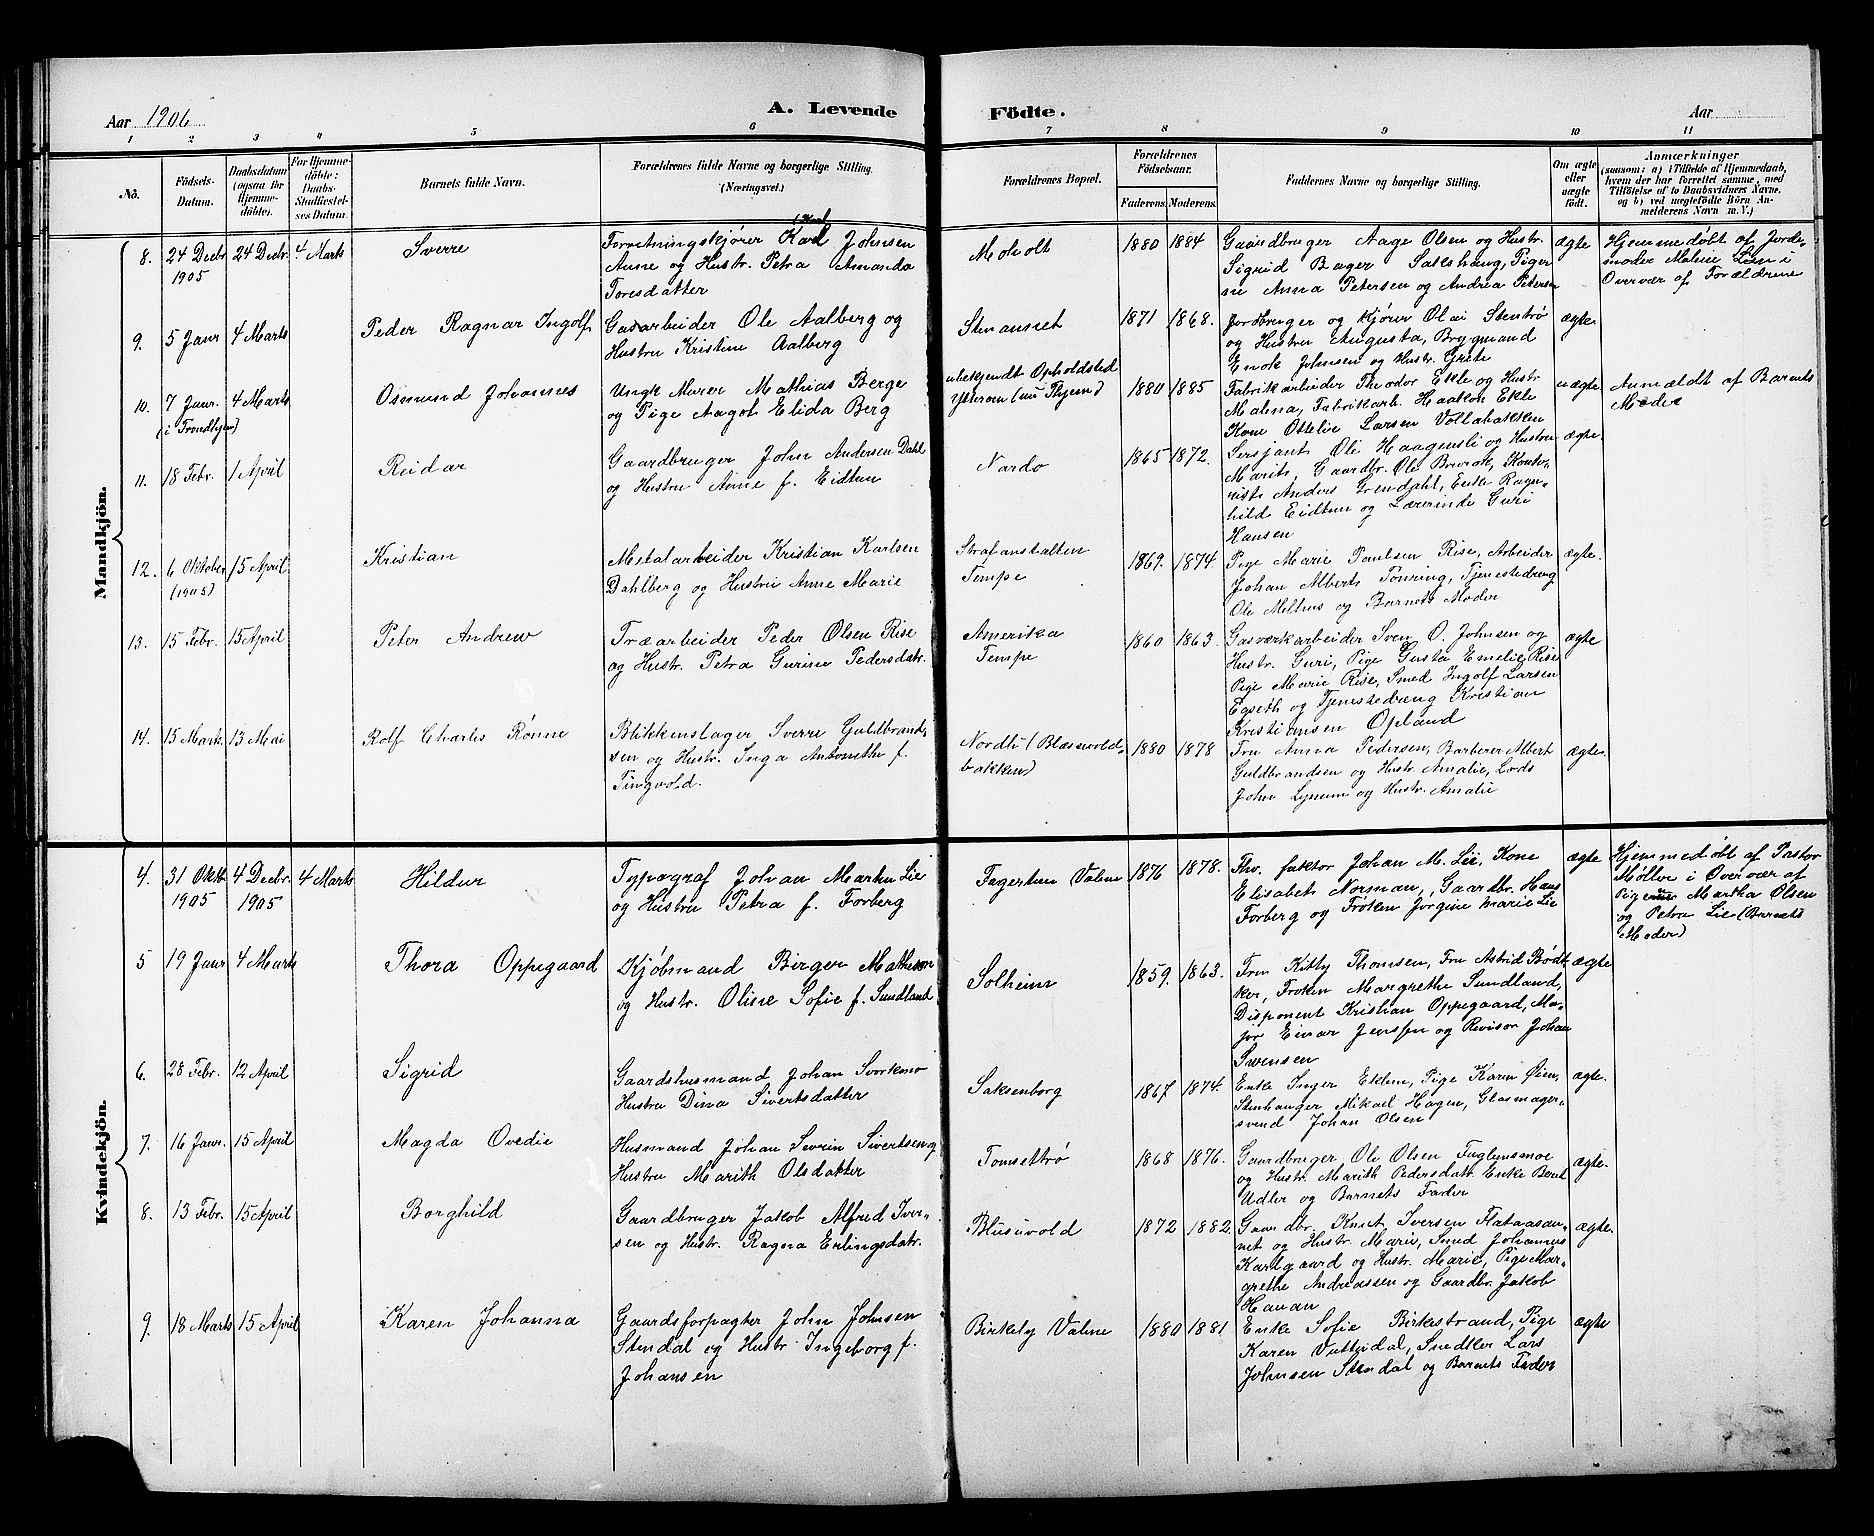 Aar 1906
A. Levende Födte.
Aar
1 2 3 4 5 6 7 8 9 10 11
No.
Födsels-Datum.
Daabsdatum (ogsaa for Hjemmedöbte).
For Hjemmedöbte: Daabs-Stadfæstelses Datum.
Barnets fulde Navn.
Forældrenes fulde Navne og borgerlige Stilling. (Næringsvei.)
Forældrenes Bopæl.
Forældrenes Födselsaar.
Faderens. Moderens.
Faddernes Navne og borgerlige Stilling.
Om ægte eller uægte födt.
Anmærkninger
(saasom: a) i Tilfælde af Hjemmedaab, hvem der har forrettet samme, med Tilföielse af to Daabsvidners Navne, og b) ved uægtefödte Börn Anmelderens Navn m. V.)
Mandkjön.
8. 24 Decbr. 1905
24 Decbr.
4 Marts
Sverre
Forretningskjører Karl Johnsen
Aune og Hustr. Petra Amanda
Toresdatter
Moholt
1880 1884
Gaardbruger Aage Olsen og Hustr.
Sigrid Bager Sakshaug, Piger
ne Anna Petersen og Andrea Petersen
ægte
Hjemmedøbt af Jorde-
moder Malene Lien i
Overvær af Forældrene
9. 5 Janr.
4 Marts
Peder Ragnar Ingolf
Gasarbeider Ole Aalberg og
Hustru Kristine Aalberg
Stenaunet
1871 1868.
Jordbruger og Kjører Olai Stentrø
og Hustru Augusta, Brygmand
Enok Johnsen og Hustr. Grete
ægte.
10. 7 Janr. (i Trondhjem)
4 Marts
Osmund Johannes
Ungk. Murer Mathias Berge
og Pige Aagot Elida Berg
ubekjendt Opholdsted
Ytterøen (nu Thjem)
1880 1885
Fabrikarbeider Theodor Ekle og Hustr
Malena, Fabrikarb. Haakon Ekle
Kone Ottelie Larsen Vollabakken
uægte
Anmældt af Barnets
Moder
11. 18 Febr.
1 April
Reidar
Gaardbruger John Andersen Dahl
og Hustru Anne f. Eidtun
Nardo
1865 1872.
Sersjant Ole Haagensli og Hustru
Marit, Gaardbr. Ole Brurok, Konto-
rist Anders Grendahl, Enke Ragn-
hild Eidtun og Lærerinde Guri
Hansen
ægte.
12. 6 Oktober (1905)
15 April
Kristian
Metalarbeider Kristian Karlsen
Dahlberg og Hustru Anne Marie
Strafanstalten
Tempe
1869. 1874
Pige Marie Paulsen Rise, Arbeider
Johan Alberts Tønring, Tjenestedreng
Ole Melhus og Barnets Moder
ægte.
13. 15 Febr.
15 April
Peter Andrew
Træarbeider Peder Olsen Rise
og Hustr. Petra Gurine Pedersdatr.
Amerika
Tempe
1860 1863.
Gasværkarbeider Sven O. Johnsen og
Hustr. Guri, Pige Gusta Emelie Rise
Pige Marie Rise, Smed Ingolf Larsen
Egseth og Tjenestedreng Kristian
Kristiansen Opland
ægte
14. 15 Marts.
13 Mai
Rolf Charles Rønne
Blikkenslager Sverre Guldbrand-
sen og Hustr. Inga Antonette f.
Tingvold.
Nordli (Blæsevold-
bakken)
1880 1878
Fru Anna Pedersen, Barberer Albert
Guldbrandsen og Hustr. Amalie, Lods
John Lynum og Hustr. Amalie
ægte.
Kvindekjön.
4. 31 Oktbr. 1905
4 Decbr. 1905
4 Marts
Hildur
Typograf Johan Martin Lie
og Hustru Petra f. Forberg
Fagertun Valene
1876 1878.
Fhv. faktor Johan M. Lie, Kone
Elisabet Norman, Gaardbr. Hans
Forberg og Frøken Jørgine Marie Lie
ægte
Hjemmedøbt af Pastor
Møller i Overvær af
Pigerne Martha Olsen
og Petra Lie (Barnets
Moder)
5 19 Janr
4 Marts
Thora Oppegaard
Kjøbmand Birger Matheson
og Hustr. Oline Sofie f. Sundland
Solheim
1859. 1863.
Fru Kitty Thomsen, Fru Astrid Bødt
ker, Frøken Margrethe Sundland,
Disponent Kristian Oppegaard, Ma-
jor Einar Jenssen og Revisor Johan
Svensen
ægte
6. 28 Febr.
12 April
Sigrid
Gaardshusmand Johan Svorkmo
Hustru Dina Sivertsdatter
Saksenborg
1867 1874.
Enke Inger Eklem, Pige Karen Øien,
Stenhugger Mikael Hagen, Glasmager-
svend Johan Olsen
ægte.
7. 16 Janr.
15 April
Magda Ovedie
Husmand Johan Severin Sivertsen og
Hustru Marith Olsdatter
Tomsettrø
1868 1876.
Gaardbruger Ole Olsen Fuglemsmoe
og Hustr. Marith Pedersdatr. Enke Berit
Udler og Barnets Fader
ægte.
8. 13 Febr.
15 April
Borghild
Gaardbruger Jakob Alfred Iver-
sen og Hustr. Ragna Erlingsdatr.
Blusuvold
1872 1882.
Gaardbr. Knut Iversen Flataasau-
net og Hustr. Marie, Smed Johannes
Karlgaard og Hustr. Marie, Pige Mar-
grethe Andreassen og Gaardbr. Jakob
Hanan
ægte.
9. 18 Marts
15 April
Karen Johanna
Gaardsforpagter John Johnsen
Stendal og Hustr. Ingeborg f.
Johansen
Birkely Valene
1880 1881
Enke Sofie Birkestrand, Pige
Karen Vuttudal, Snedker Lars
Johnsen Stendal og Barnets Fader
ægte